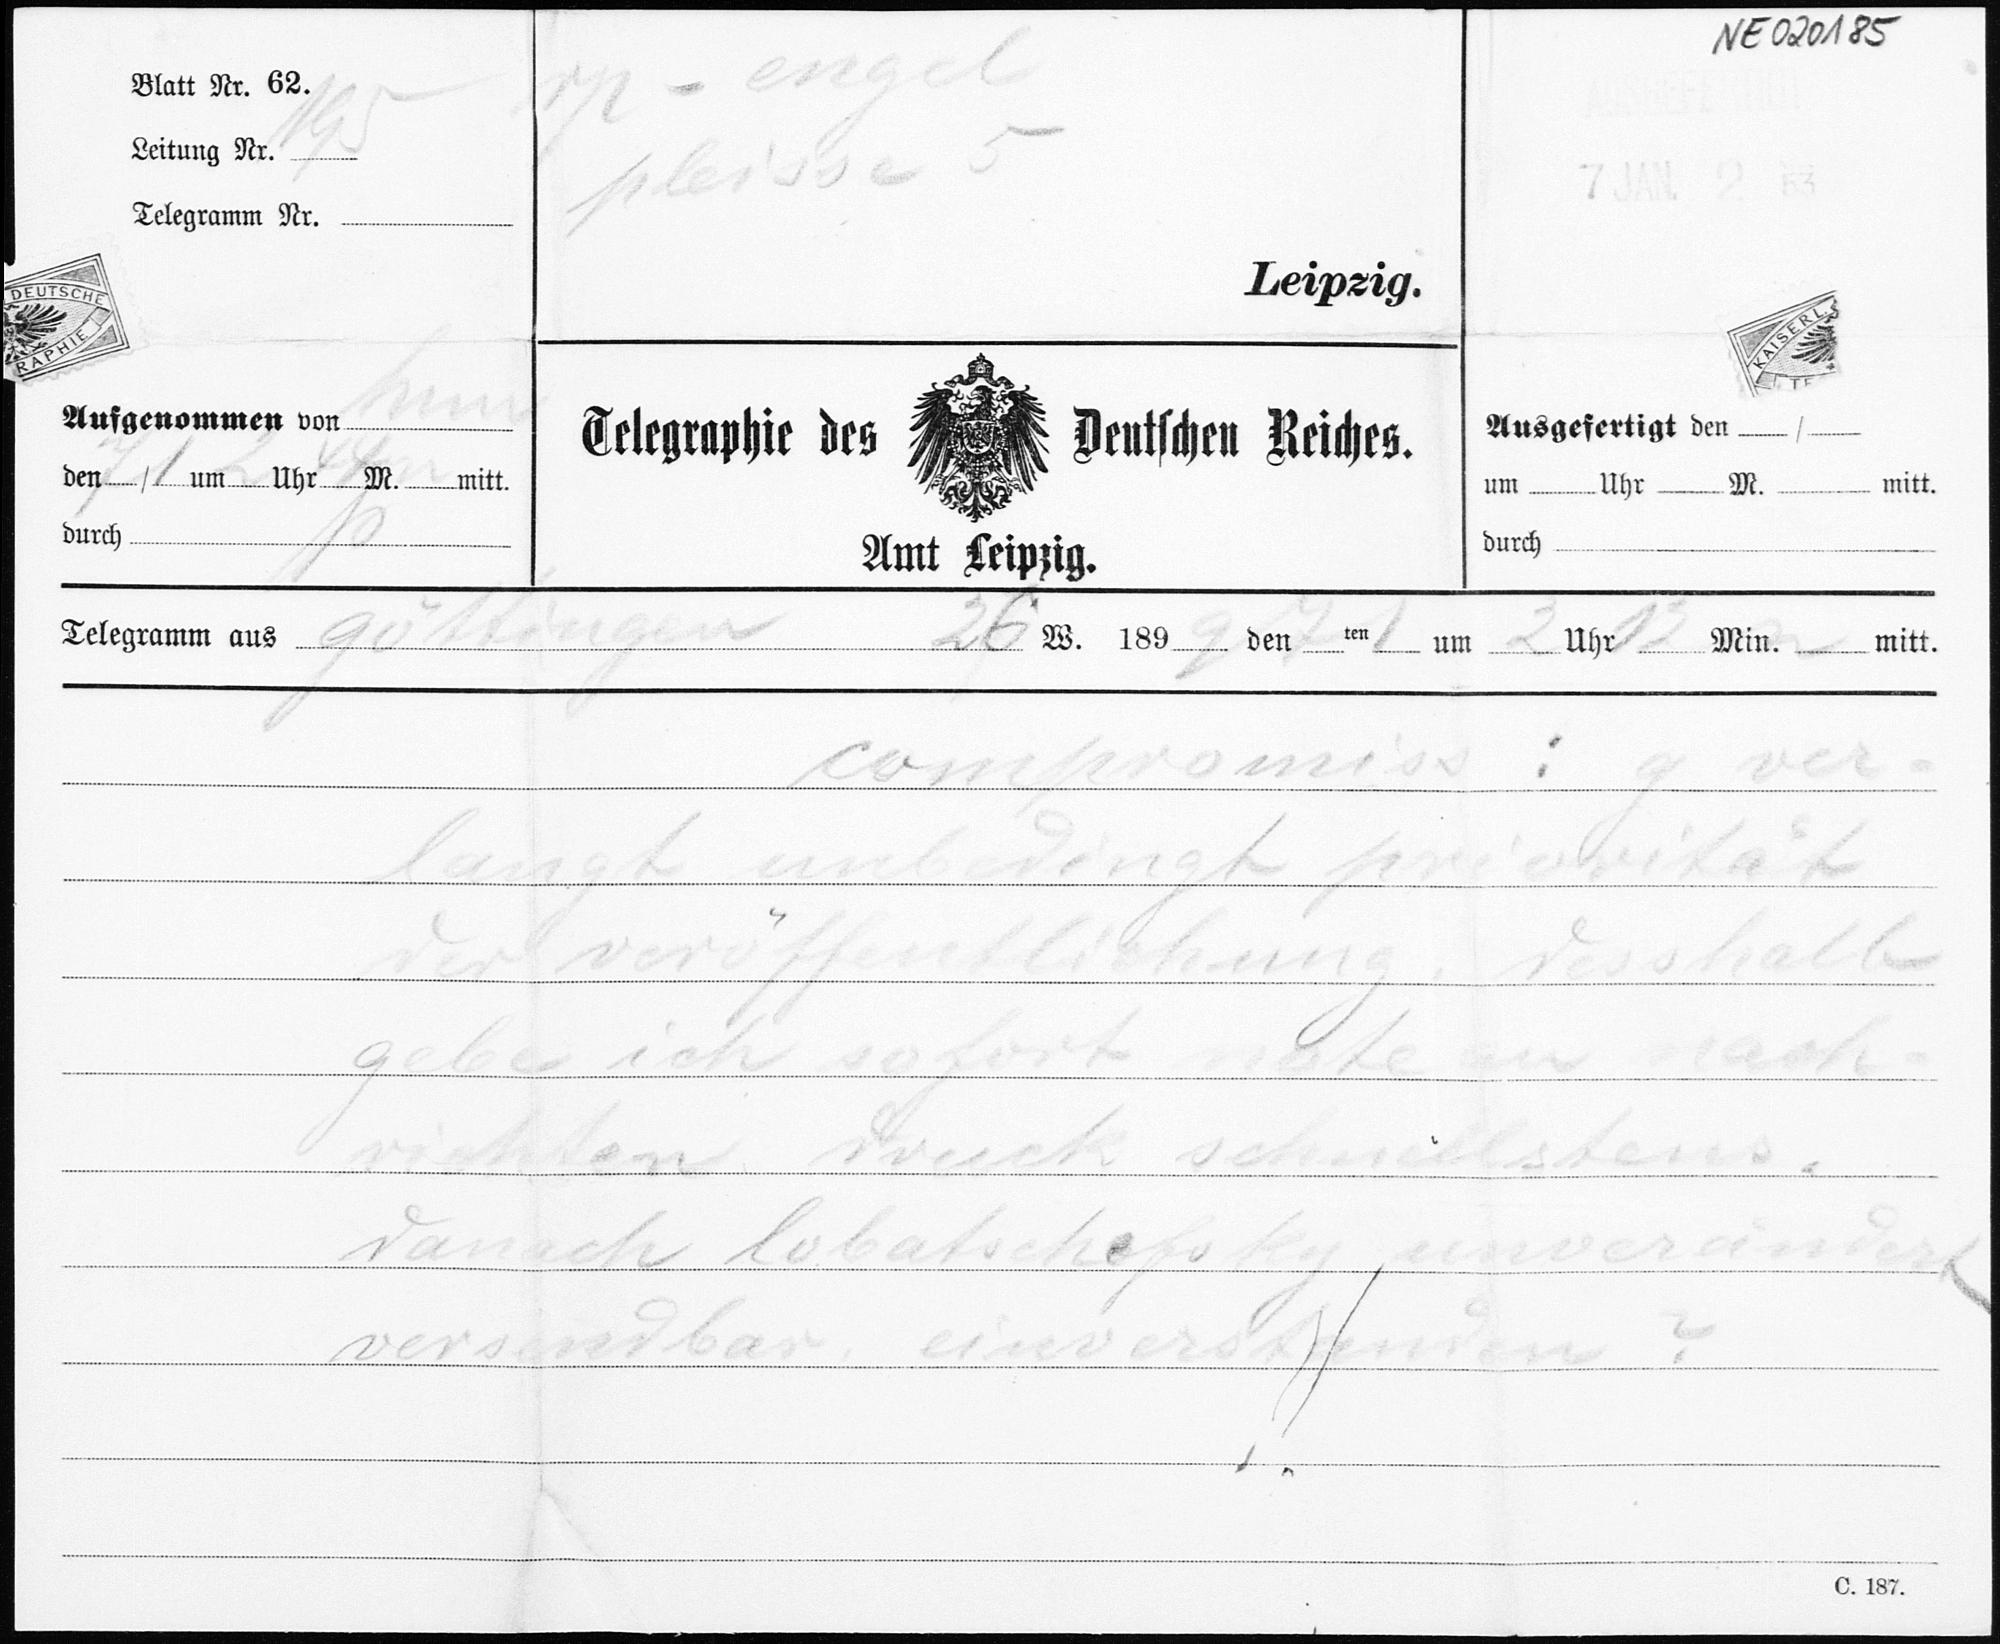 NE020185
Blatt Nr. 62.
Leitung Nr.
195
Telegramm Nr.
rp - engel
pleisse 5
Leipzig.
7 JAN. 2 53
DEUTSCHE
RAPHIE
KAISERL.
TE
Aufgenommen von
den 7/1 um 2 Uhr 44 M. n mitt.
durch p
Telegraphie des Deutschen Reiches.
Amt Leipzig.
Ausgefertigt den / 
um Uhr M. mitt.
durch
Telegramm aus göttingen 26 W. 1899 den 7ten 1 um 2 Uhr 12 Min. n mitt.
compromiss : g ver-
langt unbedingt priorität
der veröffentlichung. desshalb
gebe ich sofort note an nach-
richten. druck schnellstens.
danach lobatschefsky unverändert
versendbar. einverstanden ?
C. 187.